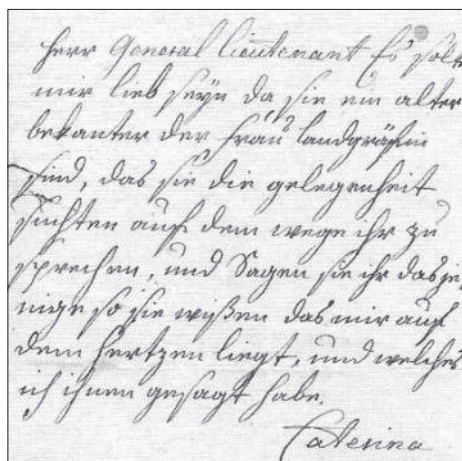 Herr General lieutenant Es solte
mir lieb seyn da sie ein alter
bekanter der Frau landgräfin
sind, das sie die gelegenheit
suchten auf dem wege ihr zu
sprechen, und Sagen sie ihr dasje,
nige so sie wißen das mir auf
dem hertzen liegt, und welches
ich ihnen gesagt habe.
Caterina